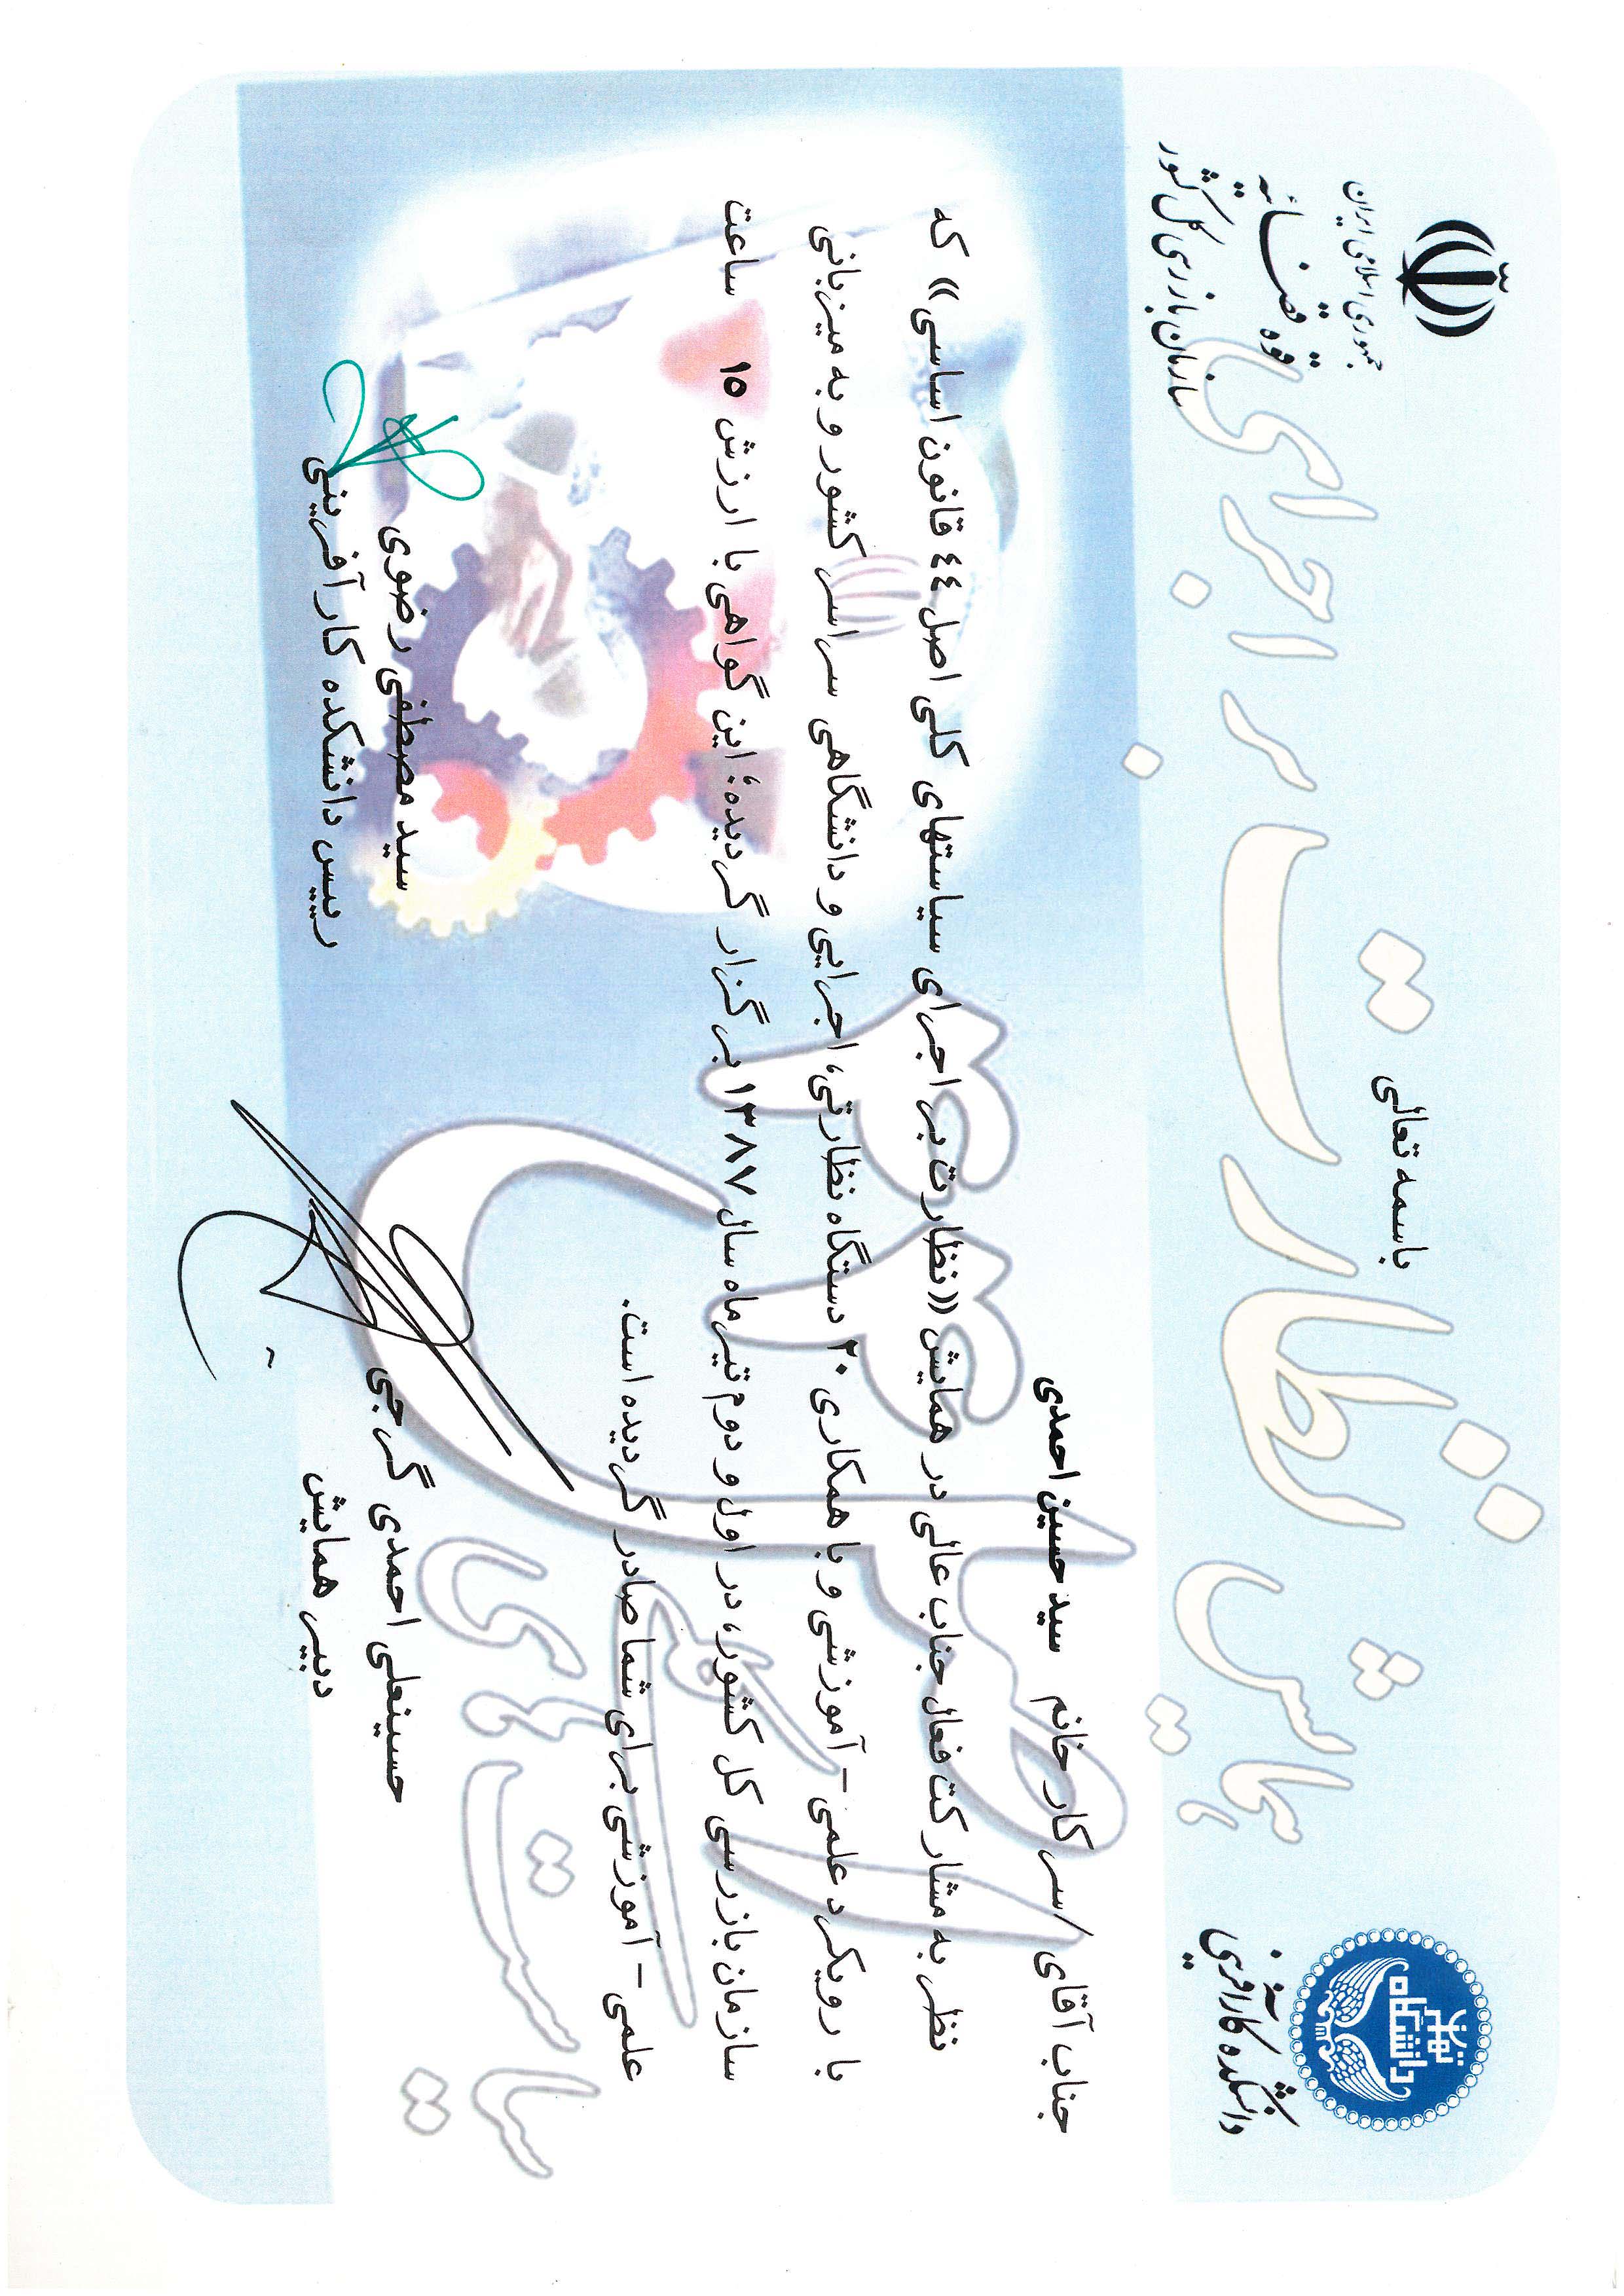 باسمه تعالی
جمهوری اسلامی ایران
قوه قضائیه
سازمان بازرسی کل کشور
دانشگاه تهران
دانشکده کارآفرینی
همایش نظارت بر اجرای
سیاست های کلی اصل ۴۴
جناب آقای / سرکار خانم سید حسین احمدی
نظر به مشارکت فعال جناب عالی در همایش «نظارت بر اجرای سیاستهای کلی اصل ٤٤ قانون اساسی» که
با رویکرد علمی - آموزشی و با همکاری ۳۰ دستگاه نظارتی، اجرایی و دانشگاهی سراسر کشور و به میزبانی
سازمان بازرسی کل کشور، در اول و دوم تیرماه سال ۱۳۸۷ برگزار گردیده؛ این گواهی با ارزش ۱۵ ساعت
علمی - آموزشی برای شما صادر گردیده است.
حسینعلی احمدی گرجی
دبیر همایش
سید مصطفی رضوی
رییس دانشکده کارآفرینی